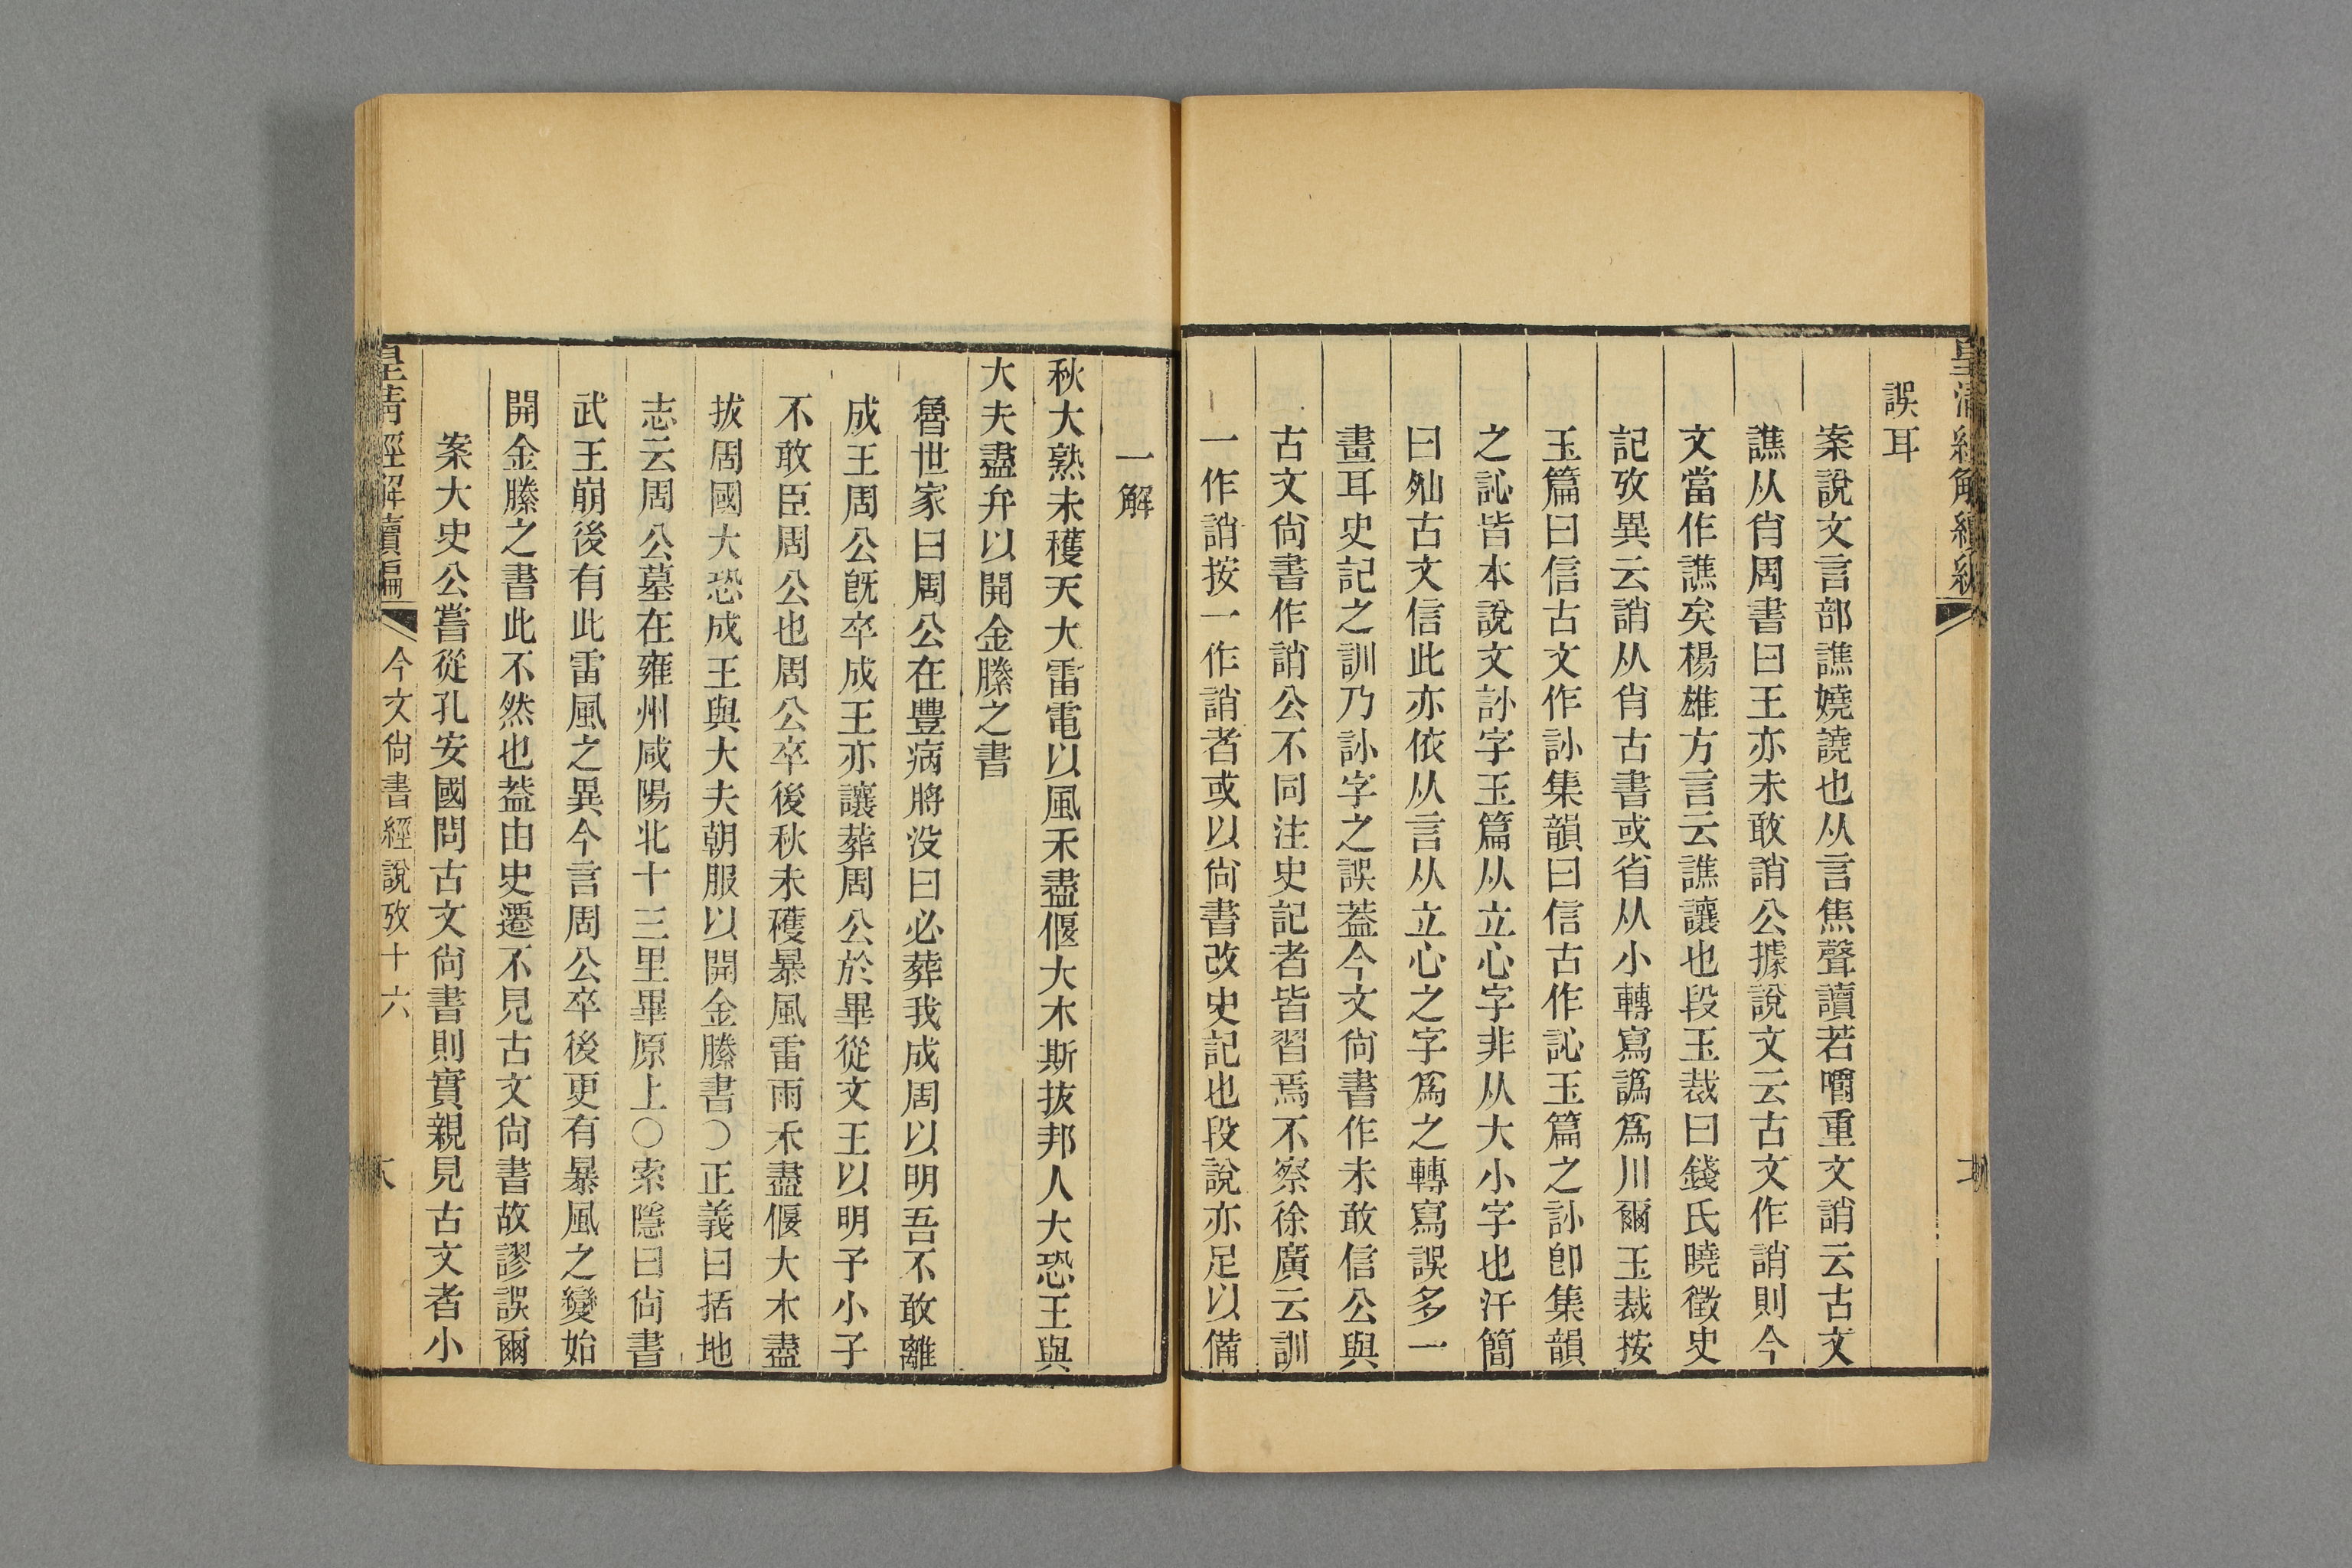 皇清經解續編
誤耳
案說文言部譙嬈譊也从言焦聲讀若嚼重文誚云古文
譙从肖周書曰王亦未敢誚公據說文云古文作誚則今
文當作譙矣楊雄方言云譙讓也段玉裁曰錢氏曉徵史
記攷異云誚从肖古書或省从小轉寫譌爲川爾玉裁按
玉篇曰信古文作訫集韻曰信古作訫玉篇之訫卽集韻
之訫皆本說文訫字玉篇从立心字非从大小字也汗簡
曰㐰古文信此亦依从言从立心之字爲之轉寫誤多一
畫耳史記之訓乃訫字之誤葢今文尙書作未敢信公與
古文尙書作誚公不同注史記者皆習焉不察徐廣云訓
一作誚按一作誚者或以尙書改史記也段說亦足以備
一解
秋大熟未穫天大雷電以風禾盡偃大木斯拔邦人大恐王與
大夫盡弁以開金縢之書
魯世家曰周公在豐病將没曰必葬我成周以明吾不敢離
成王周公旣卒成王亦讓葬周公於畢從文王以明予小子
不敢臣周公也周公卒後秋未穫暴風雷雨禾盡偃大木盡
拔周國大恐成王與大夫朝服以開金縢書○正義曰括地
志云周公墓在雍州咸陽北十三里畢原上○索隱曰尙書
武王崩後有此雷風之異今言周公卒後更有暴風之變始
開金縢之書此不然也葢由史遷不見古文尙書故謬誤爾
案大史公嘗從孔安國問古文尙書則實親見古文者小
皇淸經解續編 今文尙書經說攷十六